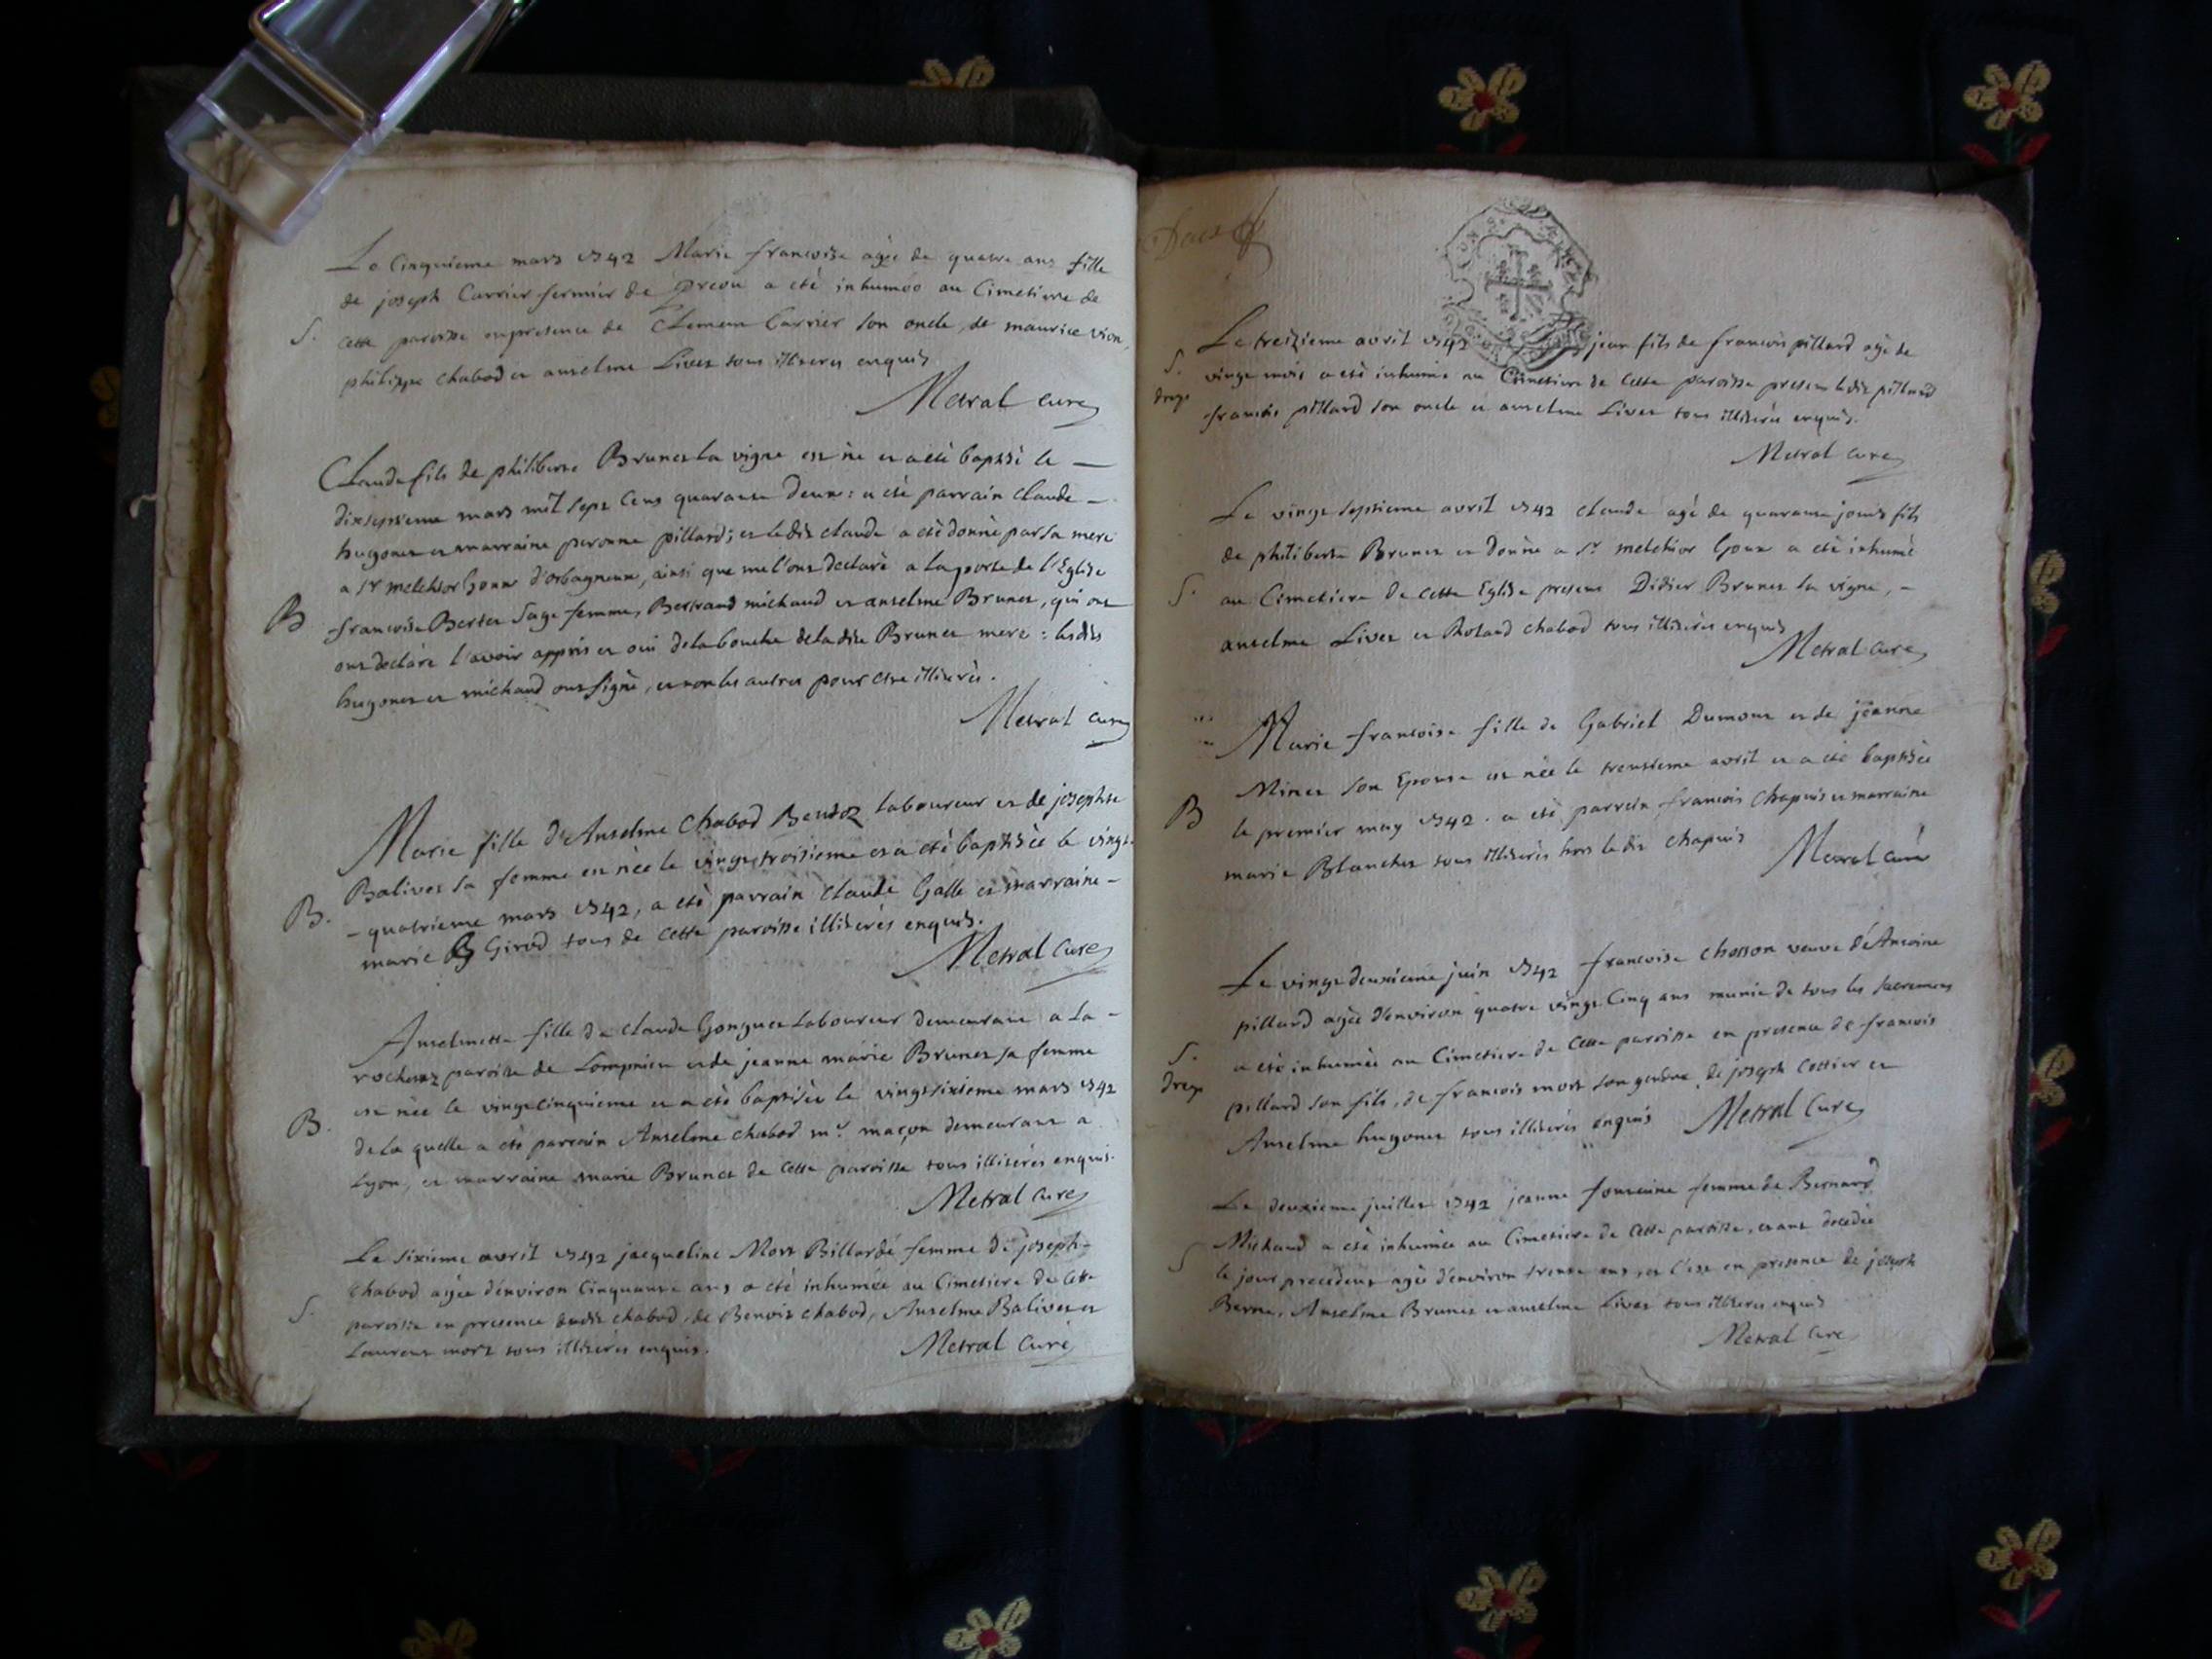 Le Cinquieme mars 1742 Marie francoise agée de quatre ans fille
de joseph Carrier fermier de a eté inhumée au Cimetierre de
S. cette paroisse en presence de Clement Carrier son oncle, de maurice vion,
philippe chabod et anselme Livet tous illiteres enquis
Metral curé
Claude fils de philiberte Brunet la vigne est né et a eté baptisé le
dixseptieme mars mil sept cens quarante deux : a eté parrain claude
hugonet et marraine peronne pillard; et ledit claude a eté donné par sa mere
a Sr melchior Goux d'orbagnoux, ainsi que me l'ont declaré a la porte de l'Eglise
B francoise Bertet sage femme, Bertrand michaud et anselme Brunet, qui ont
ont declaré l'avoir appris et oui de la bouche de la dite Brunet mere : lesdits
hugonet et michaud ont signé, et non les autres pour etre illiterés.
Metral curé
Marie fille d'Anselme Chabod laboureur et de josephte
Balivet sa femme est née le vingt troisieme et a eté baptisée le vingt
B. - quatrieme mars 1742, a eté parrain Claude Galle et marraine -
marie Girod tous de cette paroisse illiterés enquis.
Metral curé
Anselmette fille de claude Gonguet Laboureur demeurant a La -
paroisse de Lompnieu et de jeanne marie Brunet sa femme
est née le vingt cinquieme et a eté baptisée le vingt sixieme mars 1742
B. de la quelle a eté parrain Anselme chabod me maçon demeurant a
Lyon, et marraine marie Brunet de cette paroisse tous illiterés enquis.
Metral curé
Le sixieme avril 1742 jacqueline Mort Billardé femme de joseph -
chabod agée d'environ cinquante ans a eté inhumée au Cimetiere de cette
S. paroisse en presence dudit chabod, de Benoit chabod, Anselme Balivet et
Laurent mort tous illiterés enquis.
Metral Curé
Le treizieme avril 1742 jean fils de francois pillard agé de
S. vingt mois a eté inhumé au Cimetiere de cette paroisse present ledit pillard
francois pillard son oncle et anselme Livet tous illiterés enquis.
Metral curé
Le vingt septieme avril 1742 claude agé de quarante jours fils
de philiberte Brunet et donné a Sr melchior Goux a eté inhumé
S. au Cimetiere de cette Eglise presens Didier Brunet la vigne, -
anselme Livet et Roland chabod tous illiterés enquis
Metral curé
Marie francoise fille de Gabriel Dumont et de jeanne
Minet son Epouse est née le trentieme avril et a eté baptisée
B le premier may 1742. a eté parrein francois Chapuis et marraine
marie Blanchet tous illiterés hors ledit chapuis
Metral curé
Le vingt deuxieme juin 1742 francoise chosson veuve d'Antoine
pillard agée d'environ quatre vingt Cinq ans munie de tous les sacremens
S. a eté inhumée au Cimetiere de cette paroisse en presence de francois
pillard son fils, de francois mort son gendre, de joseph Cottier et
Anselme hugonet tous illiterés enquis
Metral Curé
Le deuxieme juillet 1742 jeanne fontaine femme de Bernard
Michaud a eté inhumée au Cimetiere de cette paroisse, etant decedée
S le jour precedent agée d'environ trente ans, et l'est en presence de joseph
Berne, Anselme Brunet et anselme Livet tous illiterés enquis
Metral curé